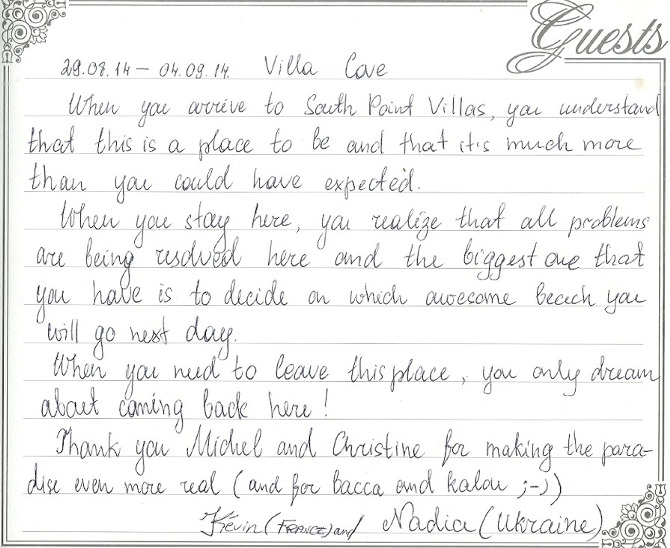 Guests
29.08.14 – 04.09.14. Villa Cove
When you arrive to South Point Villas, you understand
that this is a place to be and that it's much more
than you could have expected.
When you stay here, you realize that all problems
are being resolved here and the biggest one that
you have is to decide on which awesome beach you
will go next day.
When you need to leave this place, you only dream
about coming back here!
Thank you Michel and Christine for making the para-
dise even more real (and for bacca and kalou ;-))
Kévin (FRANCE) and Nadia (Ukraine)